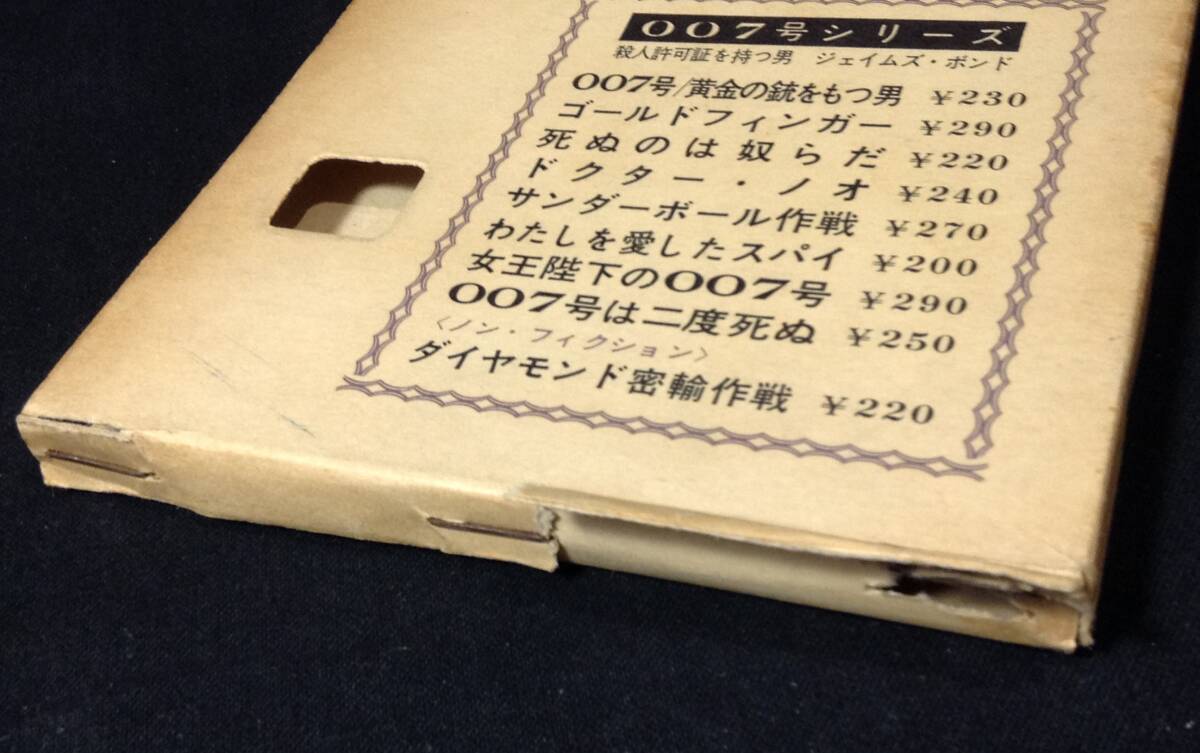 007号シリーズ
殺人許可証を持つ男 ジェイムズ・ボンド
007号/黄金の銃をもつ男 ¥230
ゴールドフィンガー ¥290
死ぬのは奴らだ ¥220
ドクター・ノオ ¥240
サンダーボール作戦 ¥270
わたしを愛したスパイ ¥200
女王陛下の007号 ¥290
007号は二度死ぬ ¥250
〈ノン・フィクション〉
ダイヤモンド密輸作戦 ¥220